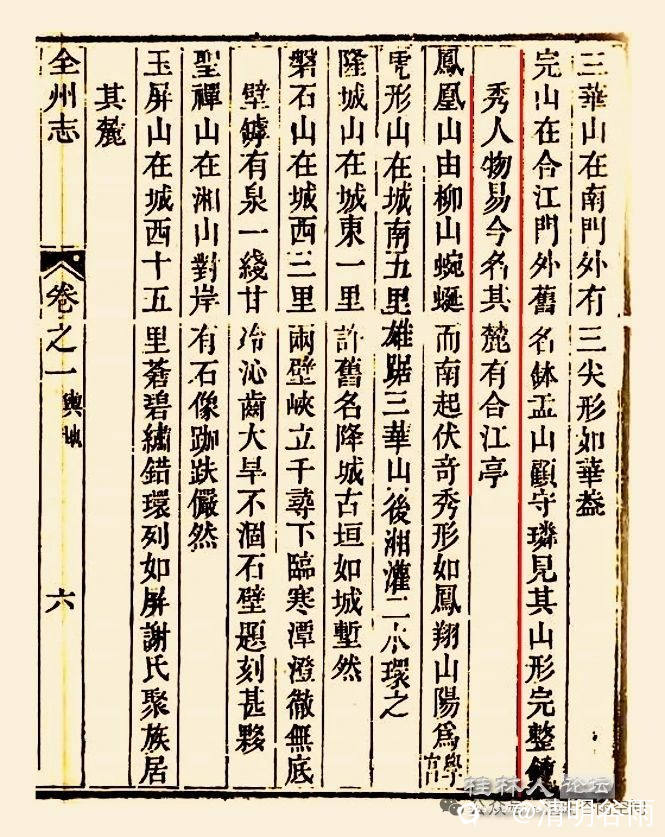 三華山在南門外有三尖形如華葢
完山在合江門外舊名鉢盂山顧守璘見其山形完整鍾
秀人物易今名其麓有合江亭
鳳凰山由柳山蜿蜒而南起伏竒秀形如鳳翔山陽爲學宫
虎形山在城南五里雄踞三華山後湘灌二水環之
隆城山在城東一里許舊名降城古垣如城塹然
磐石山在城西三里兩壁峽立千尋下臨寒潭澄徹無底
壁罅有泉一綫甘冷沁齒大旱不涸石壁題刻甚夥
聖禪山在湘山對岸有石像跏趺儼然
玉屏山在城西十五里蒼碧繡錯環列如屏謝氏聚族居
其麓
全州志
卷之一 輿地
六
桂林人论坛
@清明谷雨